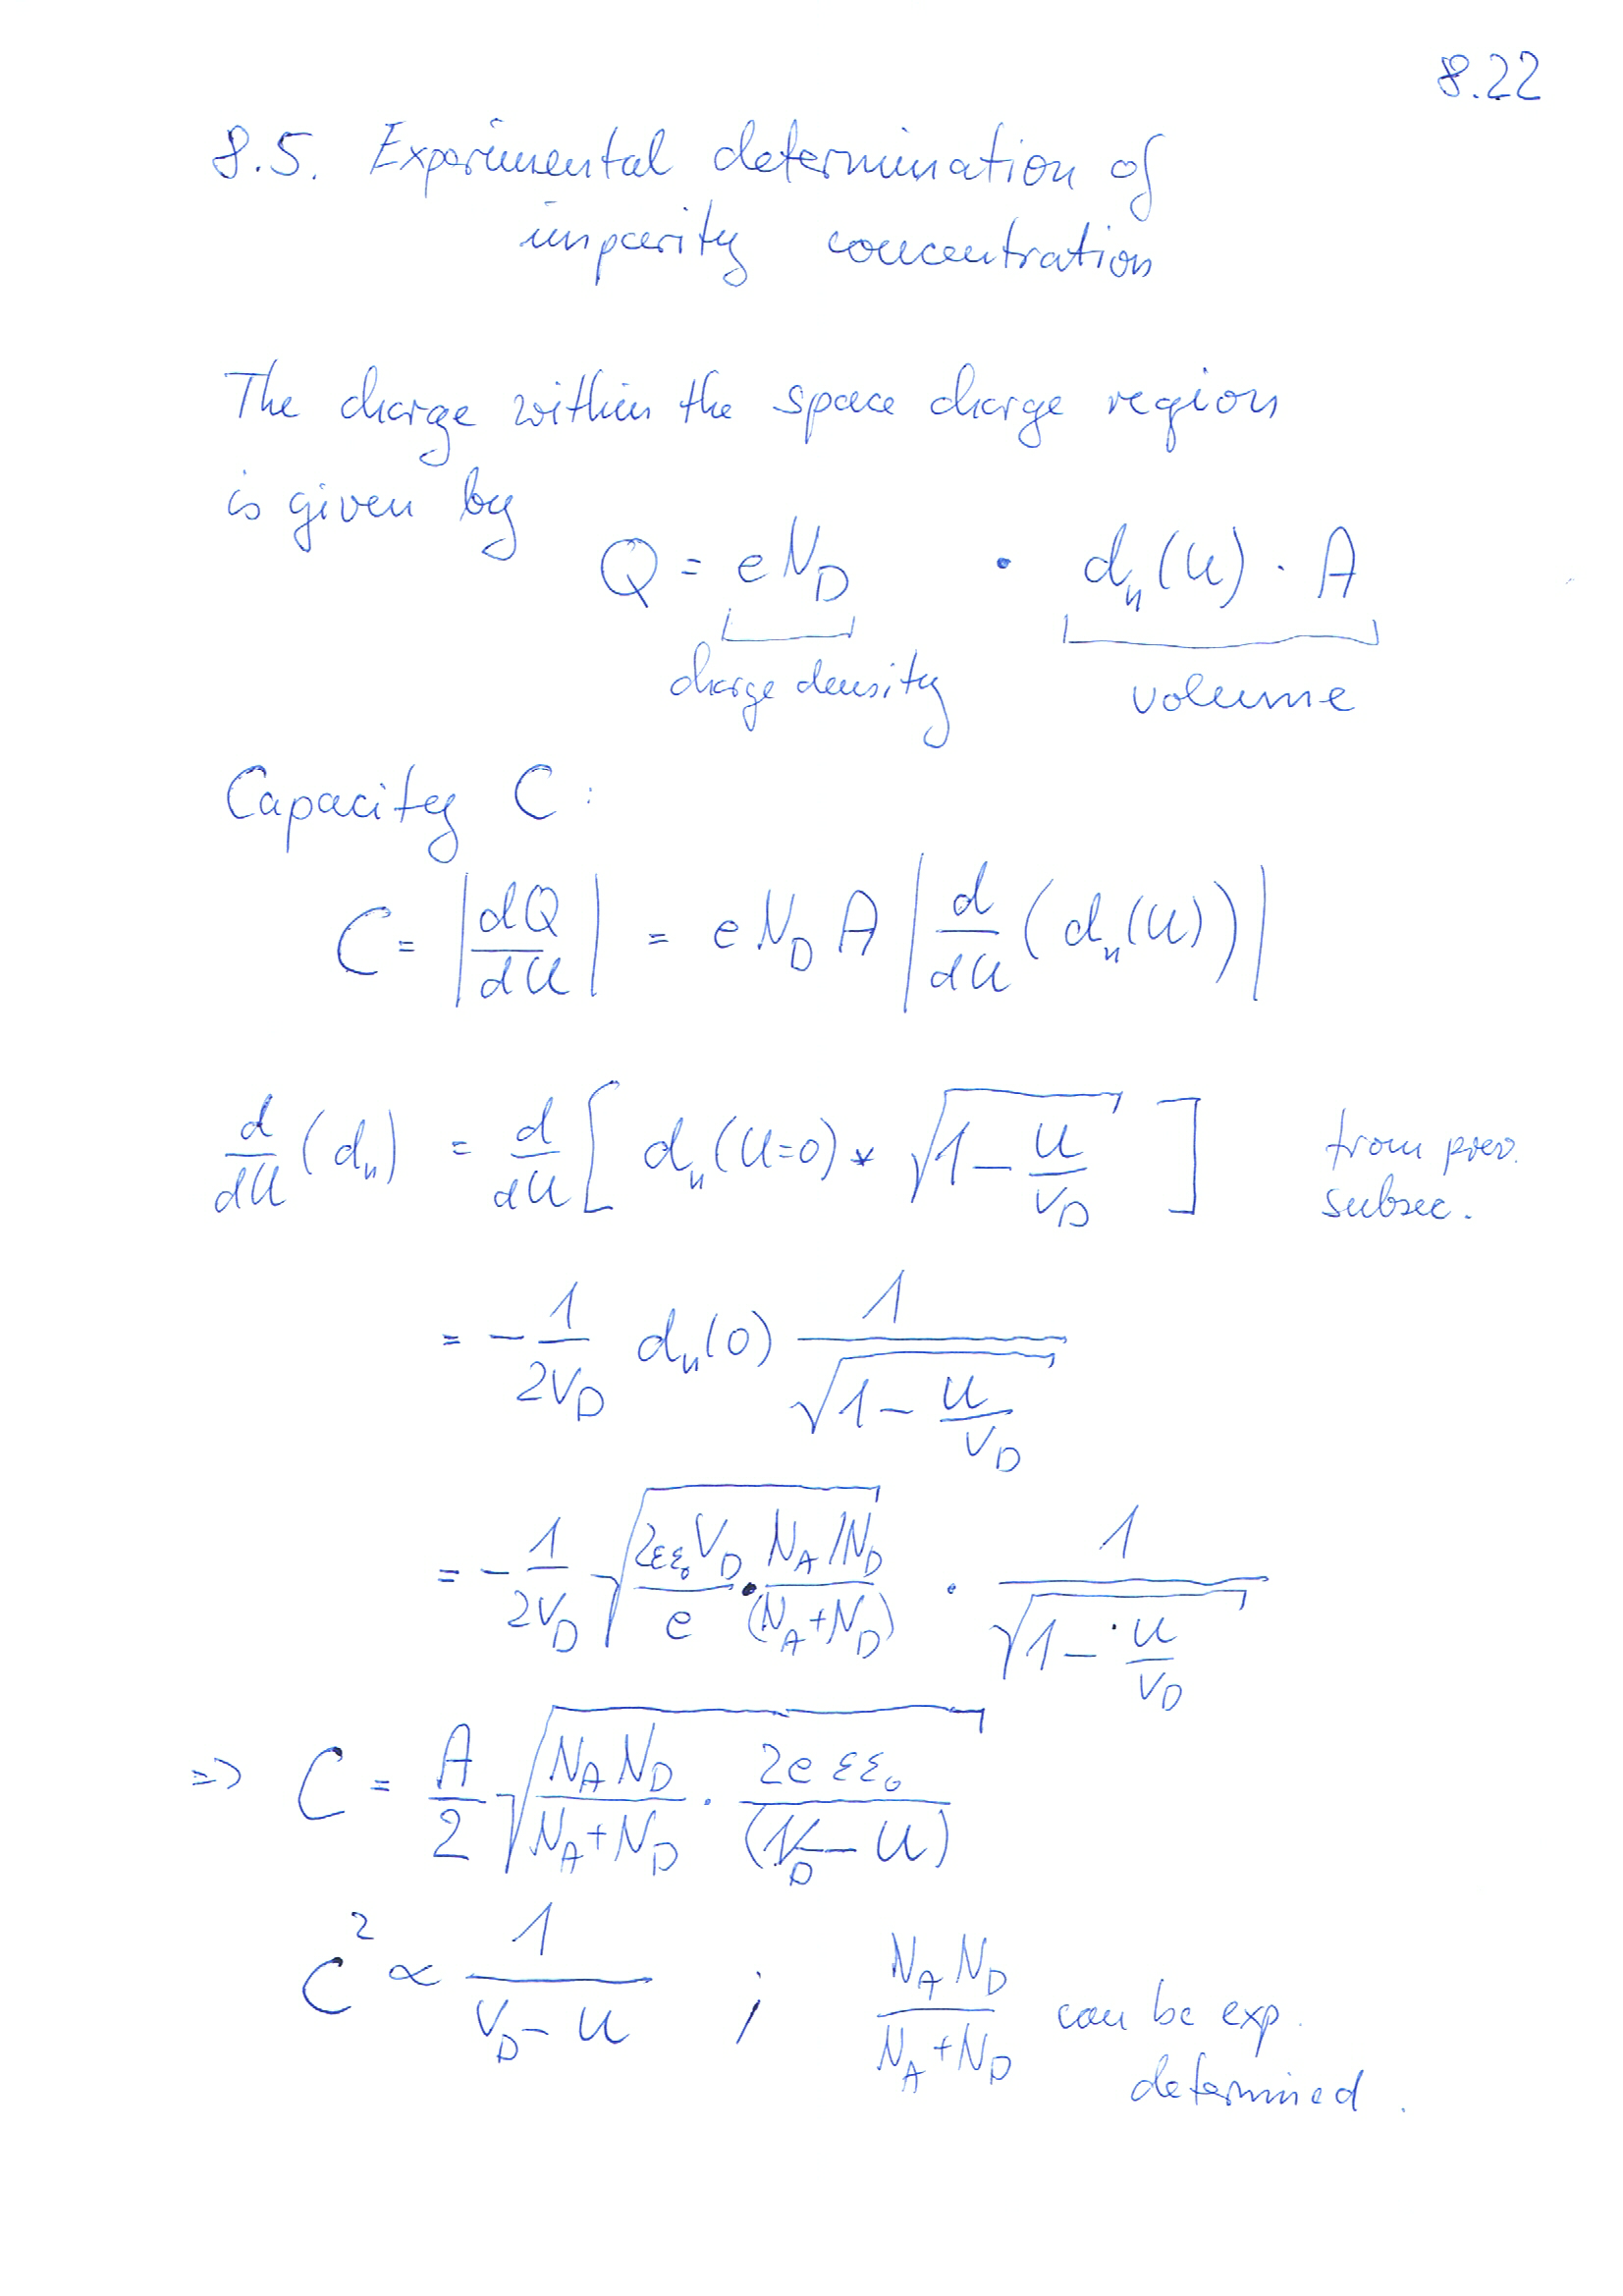 8.22
8.5. Experimental determination of
impurity concentration
The charge within the space charge region
is given by
Q = e N_D · d_n(U) · A
charge density volume
Capacity C :
C = |dQ/dU| = e N_D A |d/dU (d_n(U))|
d/dU (d_n) = d/dU [ d_n(U=0) * √(1 - U/V_D) ] from prev.
subsec.
= - 1/(2V_D) d_n(0) 1/√(1 - U/V_D)
= - 1/(2V_D) √(2εε₀V_D/e · N_A/N_D/(N_A+N_D)) · 1/√(1 - U/V_D)
=> C = A/2 √(N_A N_D/(N_A+N_D) · 2e εε₀/(V_D - U))
C² ∝ 1/(V_D - U) ; N_A N_D/(N_A+N_D) can be exp.
determined.